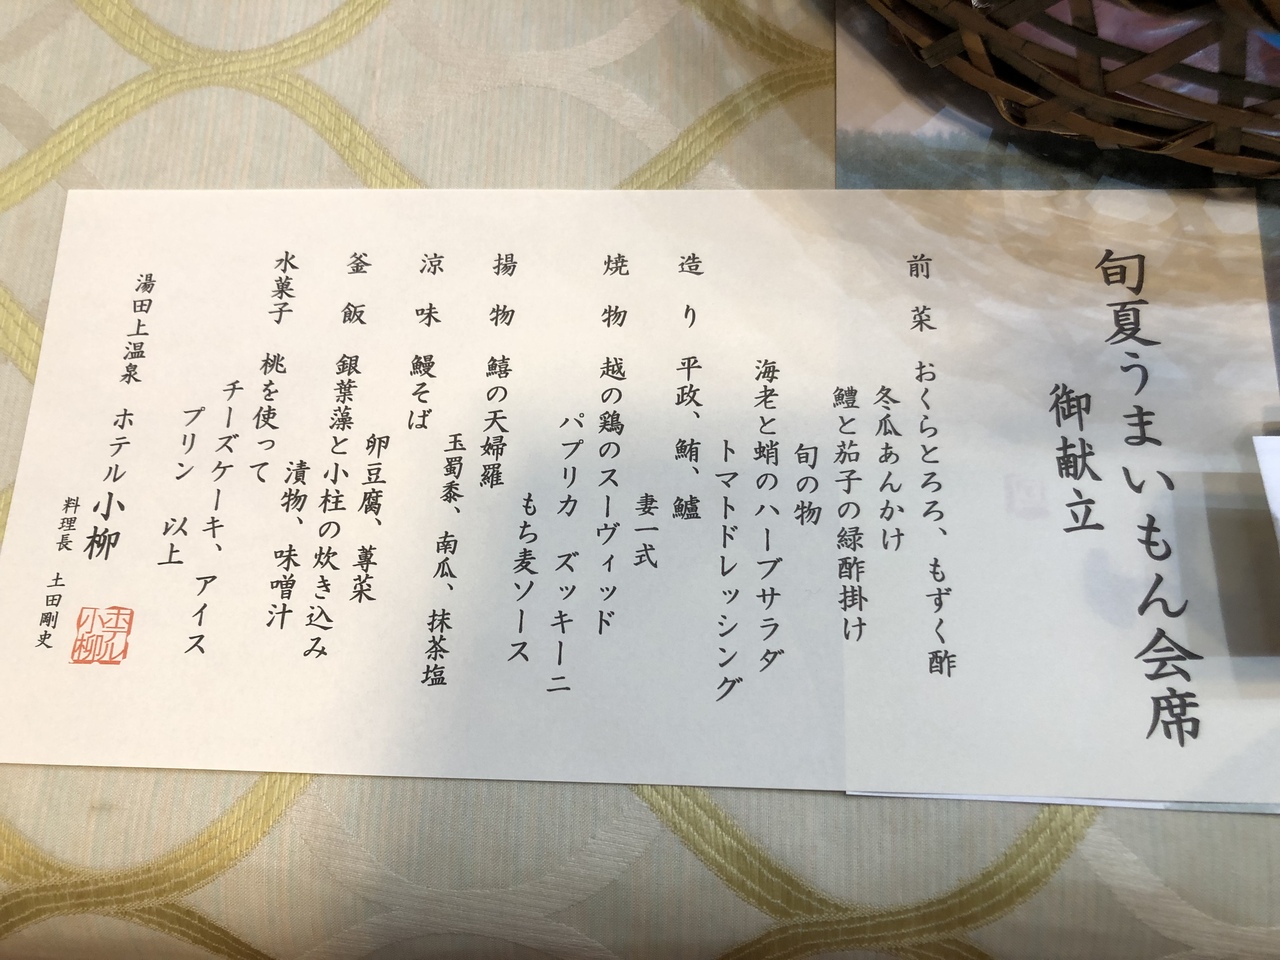 旬夏うまいもん会席
御献立
前菜 おくらとろろ、もずく酢
冬瓜あんかけ
鱧と茄子の緑酢掛け
旬の物
海老と蛸のハーブサラダ
トマトドレッシング
造り 平政、鮪、鱸
妻一式
焼物 越の鶏のスーヴィッド
パプリカ ズッキーニ
もち麦ソース
揚物 鱚の天婦羅
玉蜀黍、南瓜、抹茶塩
涼味 鰻そば
卵豆腐、蓴菜
釜飯 銀葉藻と小柱の炊き込み
漬物、味噌汁
水菓子 桃を使って
チーズケーキ、アイス
プリン 以上
湯田上温泉 ホテル小柳
料理長 土田剛史
ホテル小柳